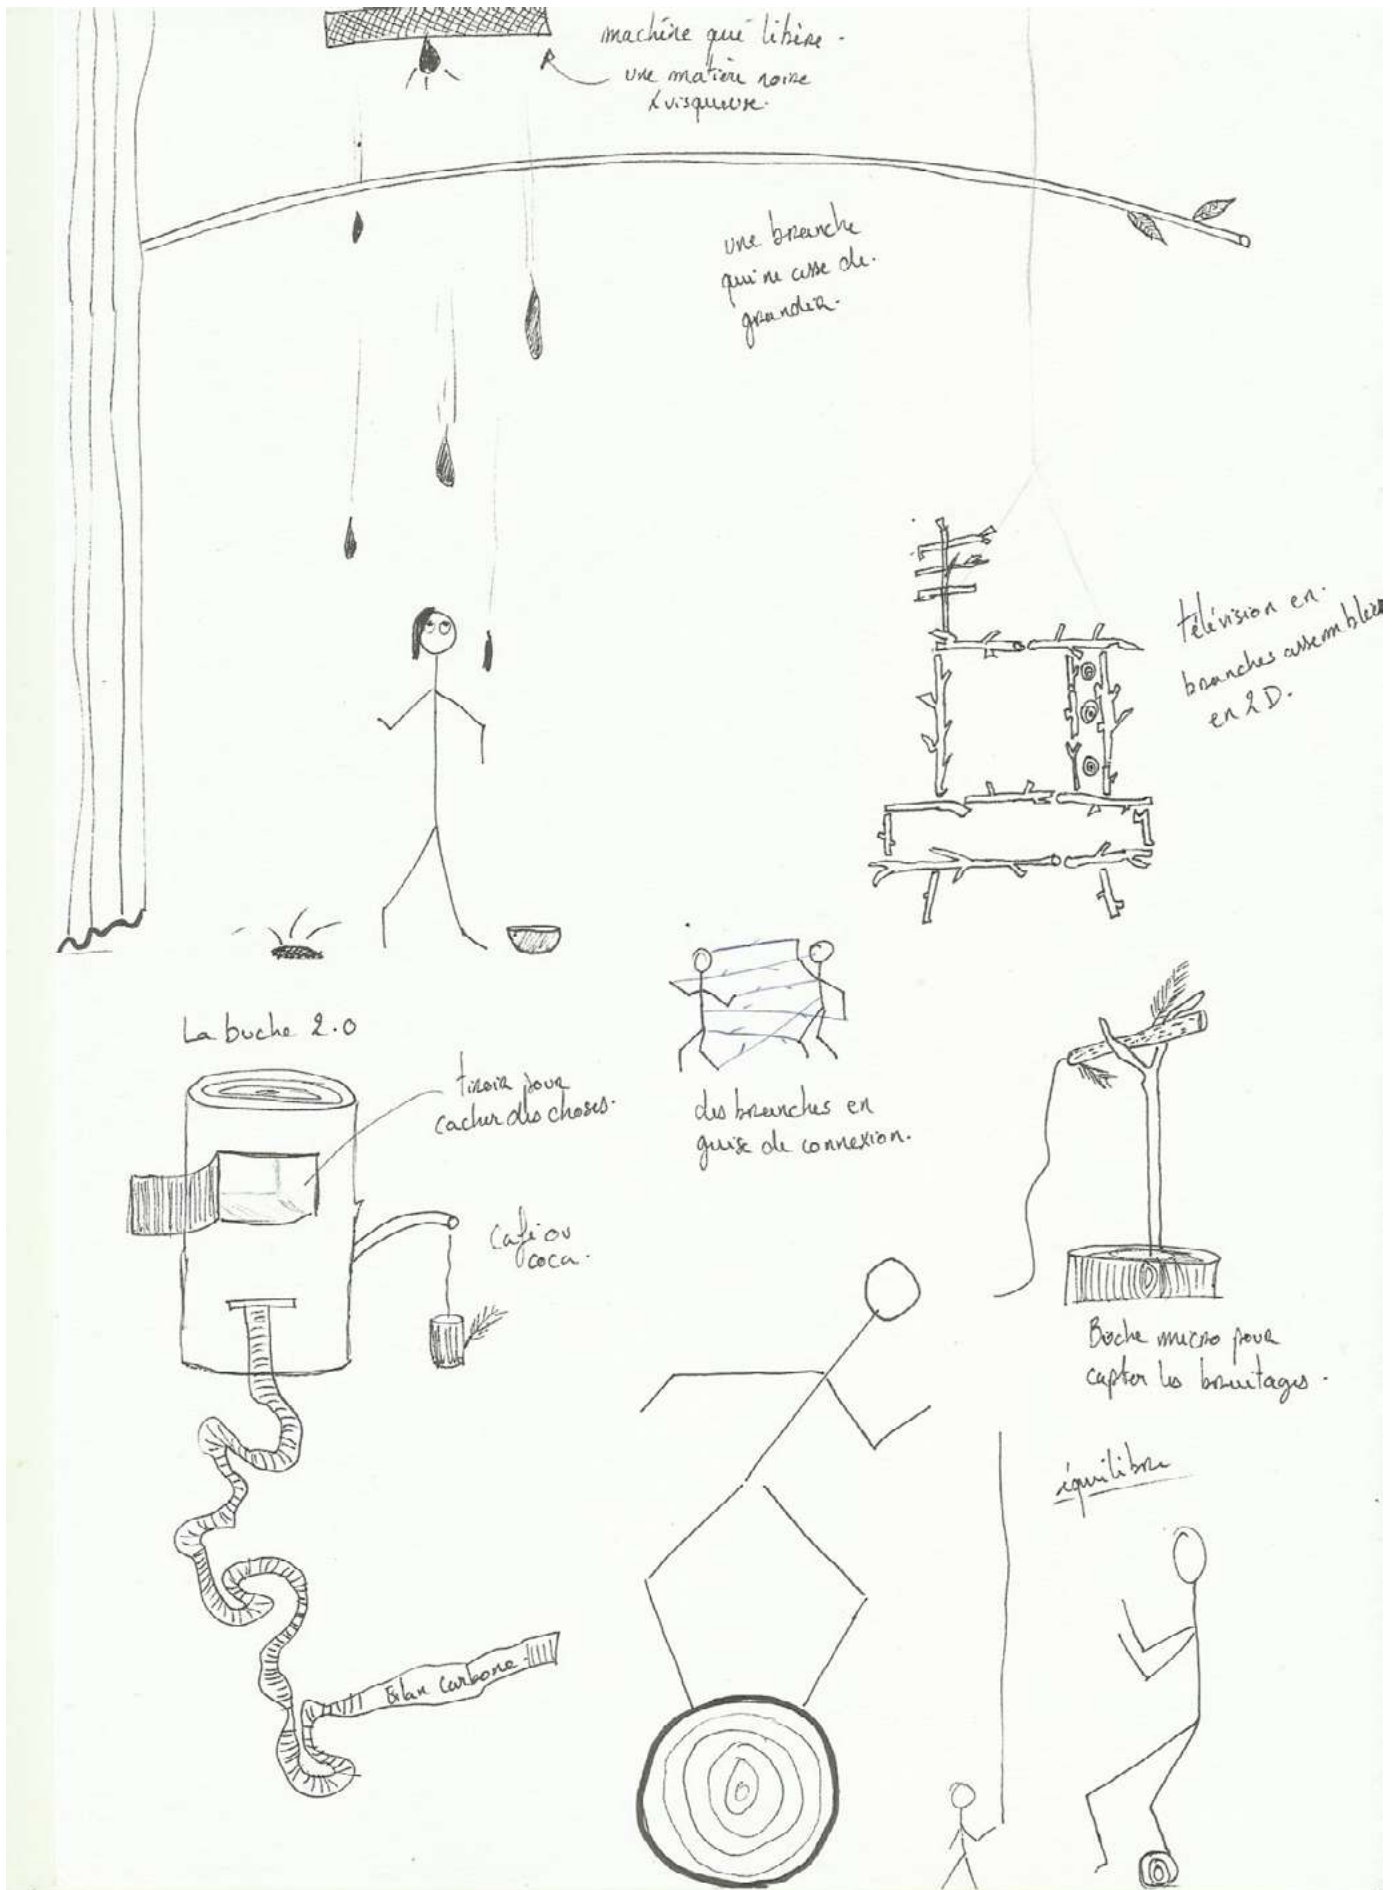 machine qui libère.
une matière noire
& visqueuse.
une branche
qui ne cesse de.
grandir.
télévision en.
branches assemblées
en 2D.
La buche 2.0
tiroir pour
cacher des choses.
des branches en
guise de connexion.
café ou
coca.
Bûche micro pour
capter les bruitages.
équilibre
Bilan Carbone.